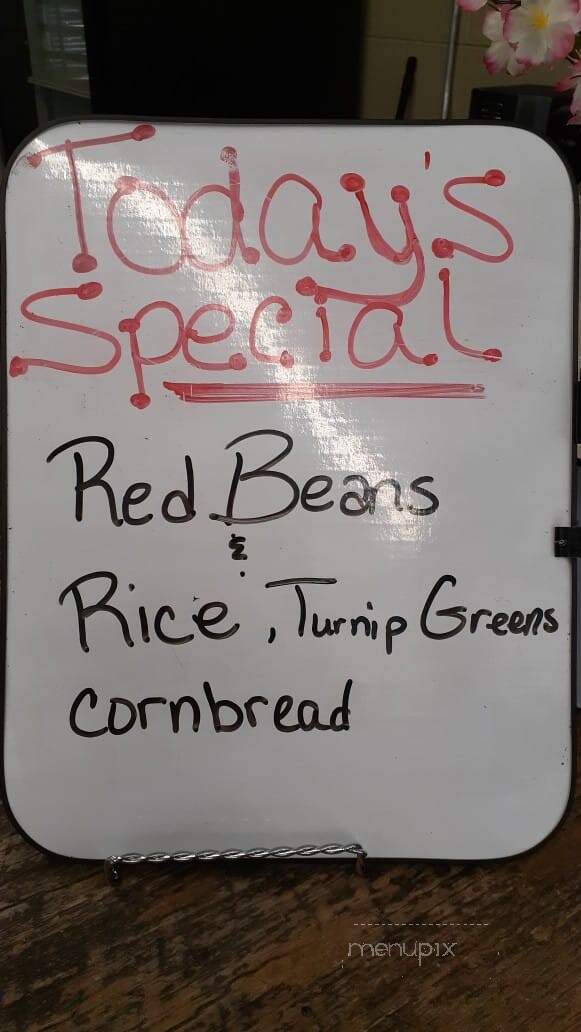 Today's
Special
Red Beans
&
Rice, Turnip Greens
cornbread
menupix